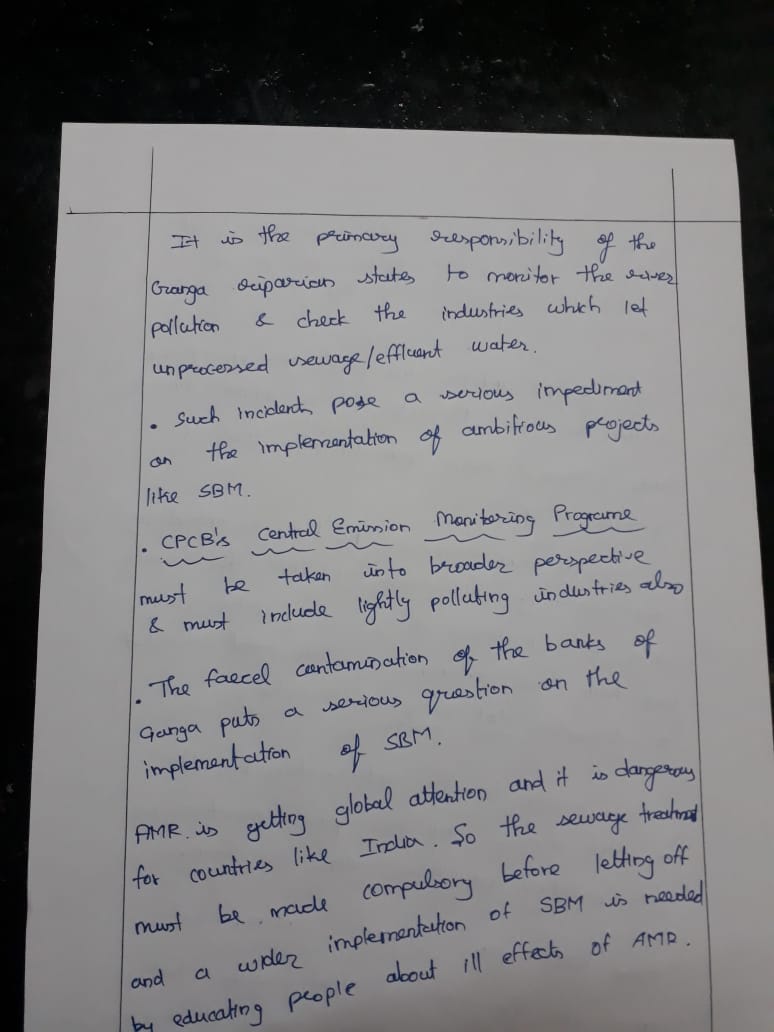 It is the primary responsibility of the
Ganga riparian states to monitor the river
pollution & check the industries which let
unprocessed sewage/effluent water.
. Such incidents pose a serious impediment
on the implementation of ambitious projects
like SBM.
. CPCB's Central Emission Monitoring Programe
must be taken into broader perspective
& must include lightly polluting industries also
. The faecel contamination of the banks of
Ganga puts a serious question on the
implementation of SBM.
AMR is getting global attention and it is dangerous
for countries like India. So the sewage treatment
must be made compulsory before letting off
and a wider implementation of SBM is needed
by educating people about ill effects of AMR.